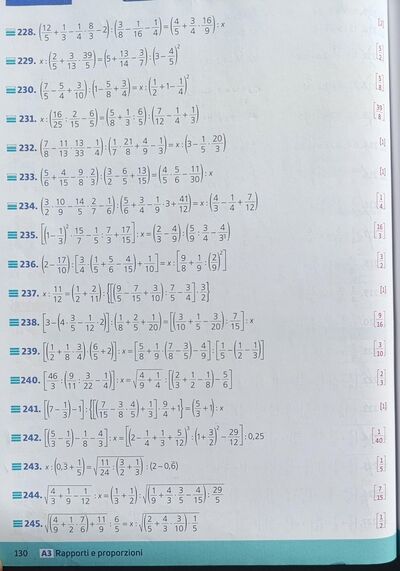 228. (12/5 + 1/3 − 1/4 · 8/3 − 2) : (3/8 − 1/16 − 1/4) = (4/5 + 3/4 · 16/9) : x [2]
229. x : (2/5 + 3/13 · 39/5) = (5 + 13/14 − 3/7) : (3 − 4/5)² [5/2]
230. (7/5 − 5/4 + 3/10) : (1 − 5/8 + 3/4) = x : (1/2 + 1 − 1/4)² [5/8]
231. x : (16/25 : 2/15 − 6/5) = (5/8 + 1/3 : 6/5) : (7/12 − 1/4 + 1/3) [39/8]
232. (7/8 − 11/13 · 13/33 − 1/4) : (1/7 · 21/8 + 4/9 − 1/3) = x : (3 − 1/5 · 20/3) [1]
233. (5/6 + 4/15 − 9/8 · 2/3) : (3/2 − 6/5 + 13/15) = (4/5 · 5/6 − 11/30) : x [1]
234. (3/2 · 10/9 − 14/5 · 2/7 − 1/6) : (5/6 + 3/4 − 1/9 · 3 + 41/12) = x : (4/3 − 1/4 + 7/12) [1/4]
235. [(1 − 1/3)² · 15/7 − 1/5 : 3/7 + 17/15] : x = (2/3 − 4/9) : (5/9 : 3/4 − 4/3³) [16/3]
236. (2 − 17/10) : [3/4 · (1/5 + 5/6 − 4/15) + 1/10] = x : [9/8 + 1/9 : (2/9)²] [3/2]
237. x : 11/12 = (1/2 + 2/11) : {[(9/5 − 7/15 + 3/10) : 7/5 − 3/4] : 3/2} [1]
238. [3 − (4 · 3/5 − 1/12 · 2)] : (1/8 + 2/5 + 1/20) = [(3/10 + 1/5 − 3/20) : 7/15] : x [9/16]
239. [(1/2 + 1/8 · 4/3) · (6/5 + 2)] : x = [5/8 + 1/9 · (7/8 − 3/5) − 4/9] : [1/5 − (1/2 − 1/3)] [3/10]
240. [46/3 : (9/11 : 3/22 − 1/4)] : x = √4/9 + 1/4 : [(2/3 + 1/2 − 1/8) − 5/6] [2/3]
241. [(7 − 1/3) − 1] : {[(7/15 − 3/8 · 4/5) + 1/3] : 9/4 + 1} = (5/3 + 1) : x [1]
242. [(5/3 − 1/5) − 1/8 − 4/3] : x = [(2 − 1/4 + 1/3 + 5/12)³ : (1 + 3/2)² − 29/12] : 0,25 [1/40]
243. x : (0,3 + 1/5) = √11/24 : (3/2 + 1/3) : (2 − 0,6) [1/5]
244. √4/3 + 1/9 − 1/12 : x = (1/3 + 1/2) : √(1/9 + 4/3 · 3/5 − 4/15) : 29/5 [7/15]
245. √(4/9 + 1/2 · 7/6) + 11/9 : 6/5 = x : √(2/5 + 4/3 · 3/10) · 1/5 [1/2]
130 A3 Rapporti e proporzioni